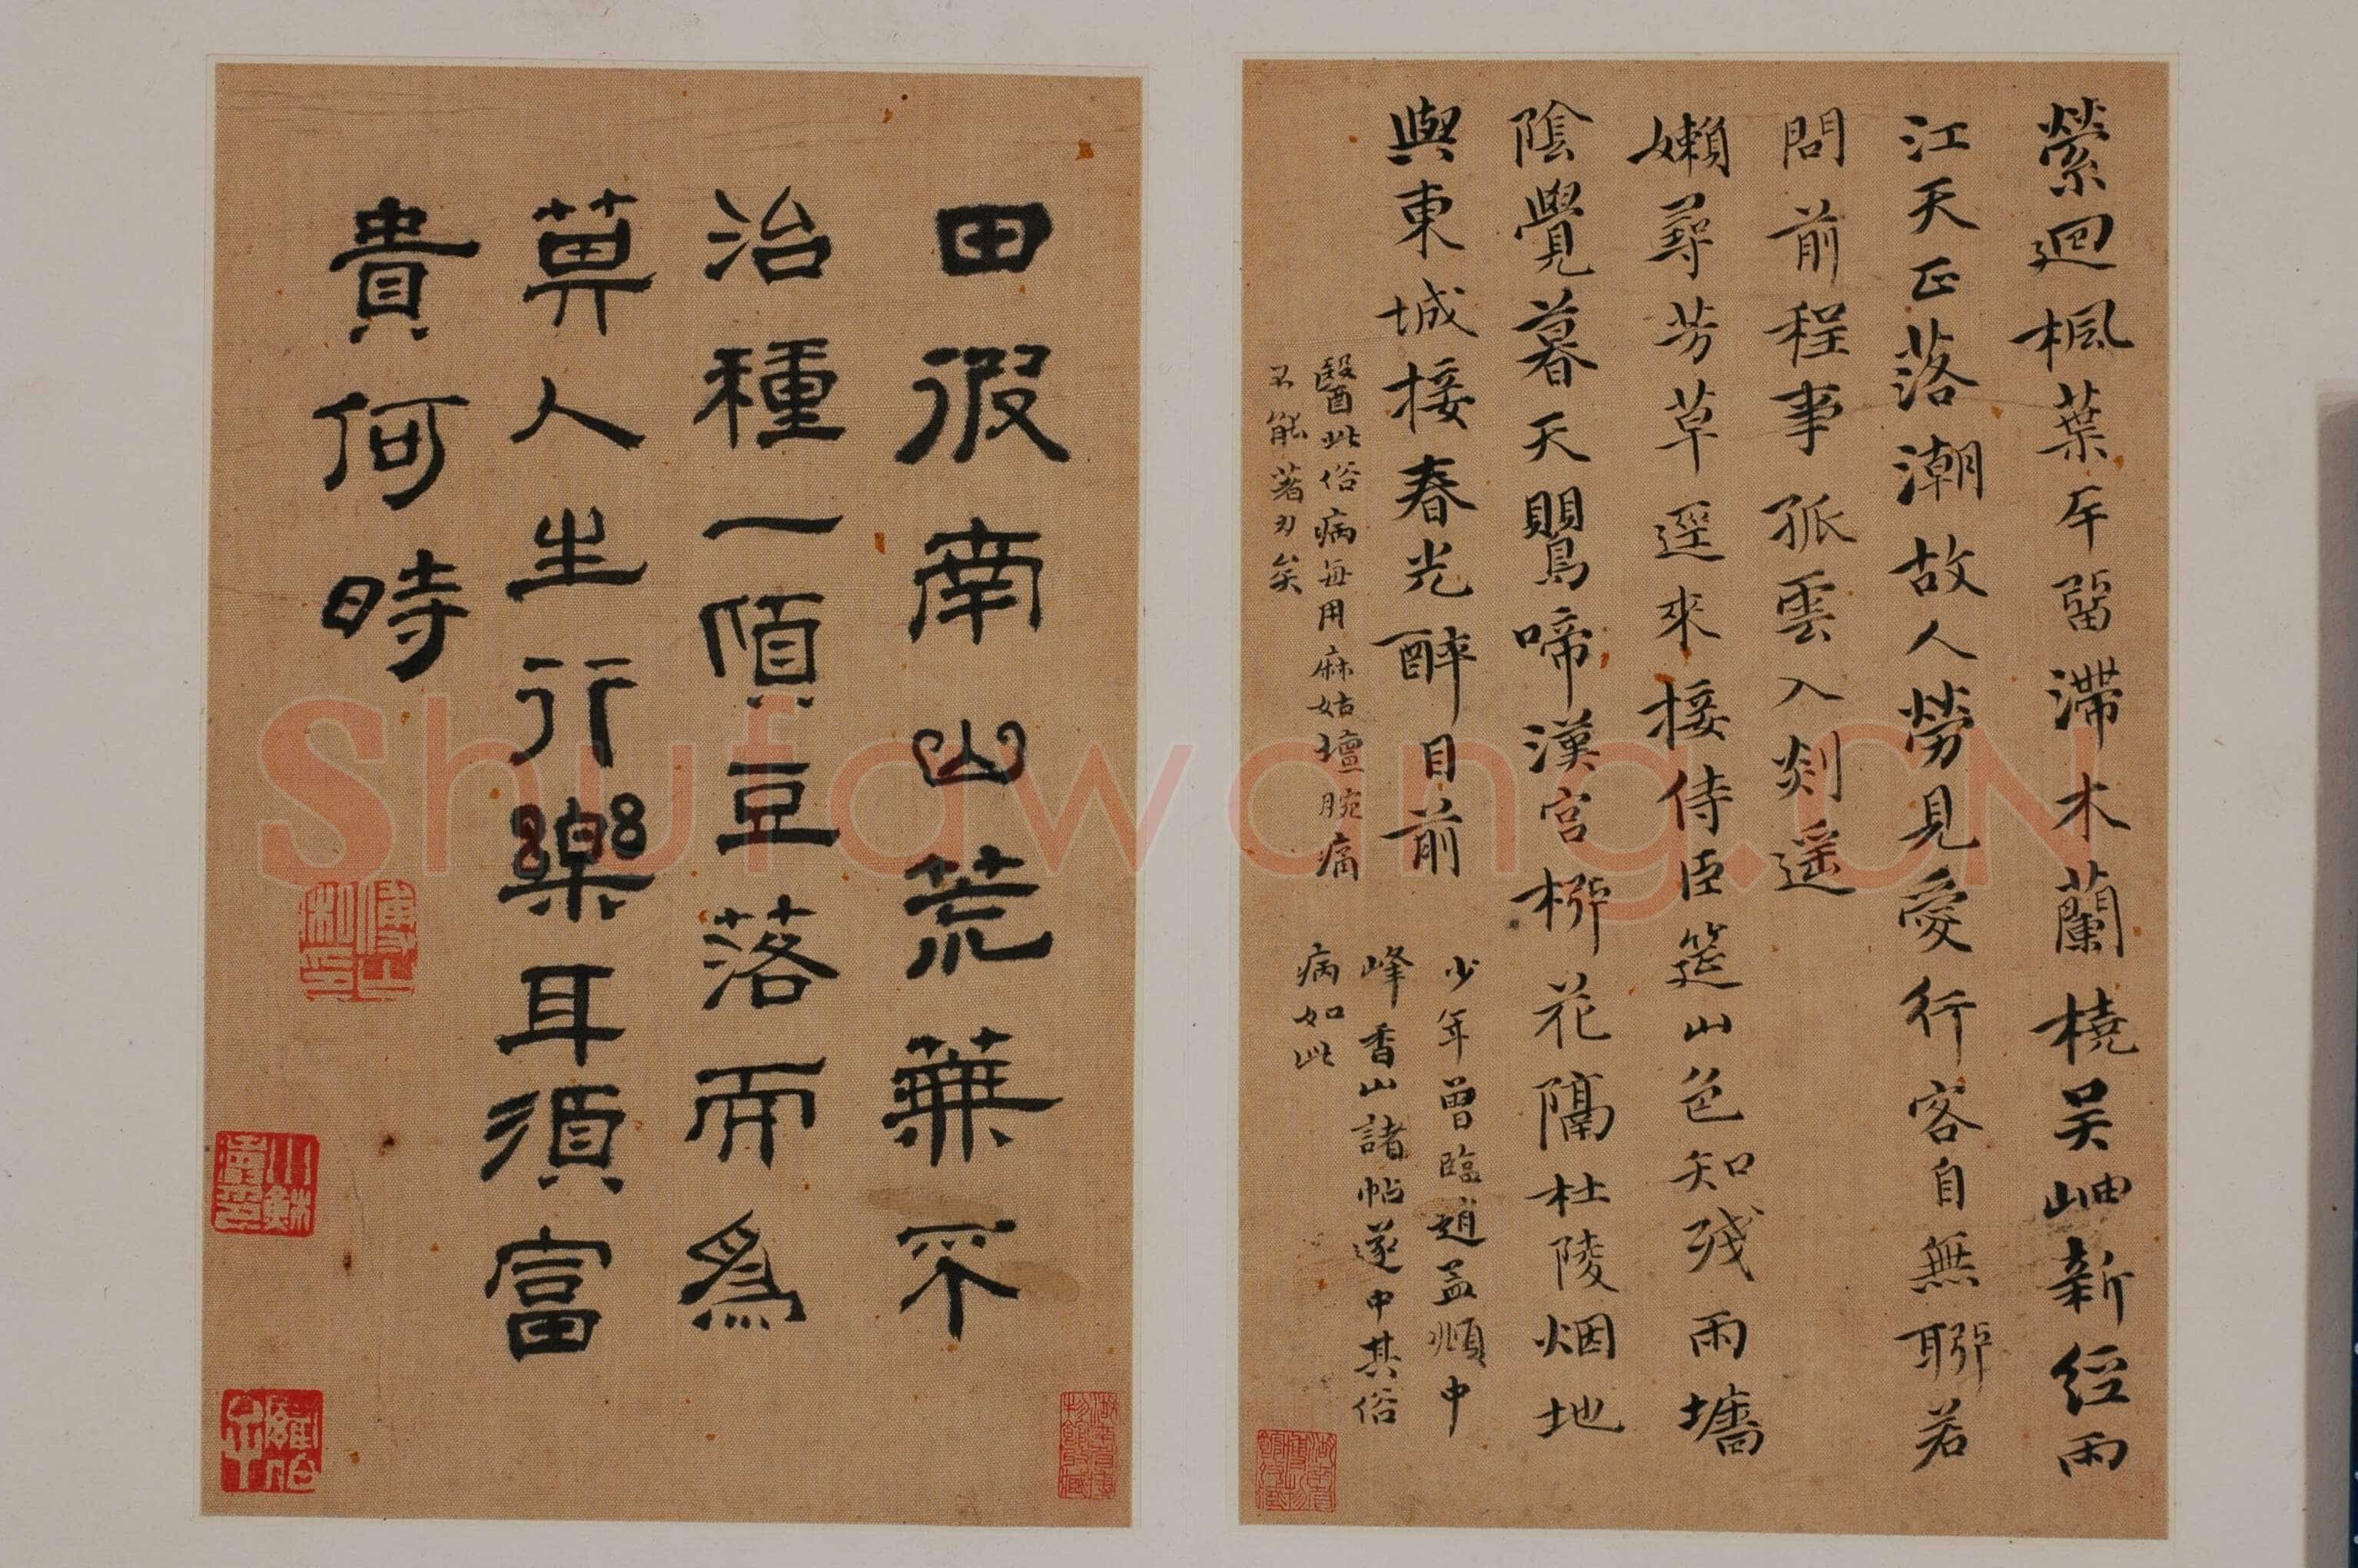 縈迴楓葉岸留滯木蘭橈吳岫新經雨
江天正落潮故人勞見愛行客自無聊若
問前程事孤雲入剡遙
嬾尋芳草逕來接侍臣筵山色知殘雨墻
陰覺暮天鶯啼漢宮柳花隔杜陵烟地
與東城接春光醉目前
少年曾臨趙孟頫中
峰香山諸帖遂中其俗
病如此
醫此俗病每用麻姑壇腕痛
不能著力矣
田彼南山荒蕪不
治種一頃豆落而為
萁人生行樂耳須富
貴何時
傅山私印
Shufawang.CN